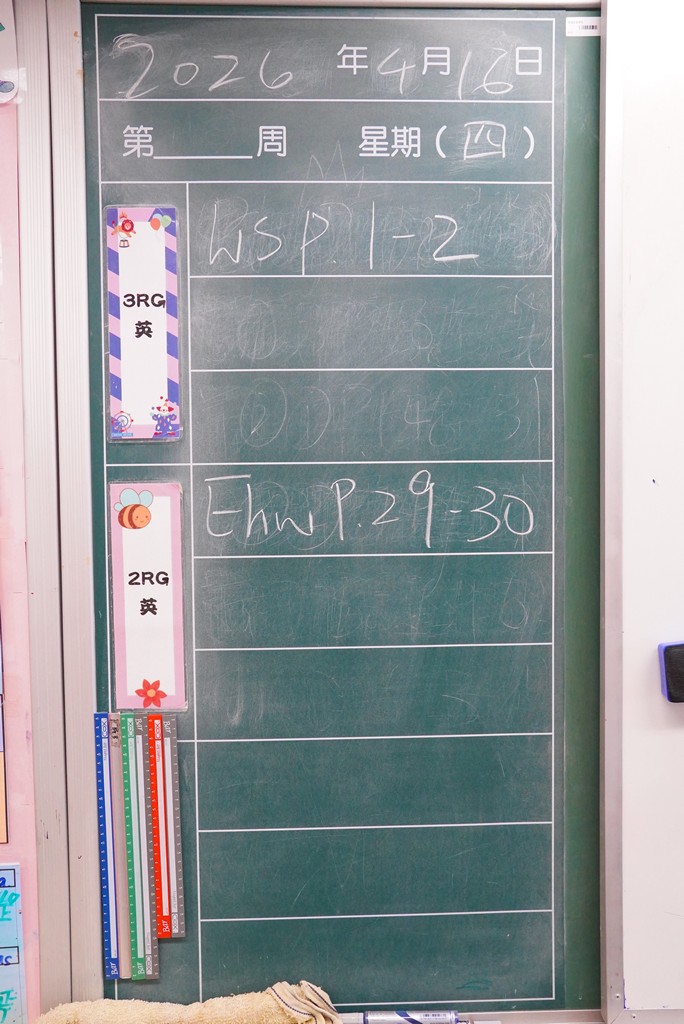 2026 年 4 月 16 日
第______周 星期(四)
3RG
英
WS P. 1-2
2RG
英
Ehw P. 29-30